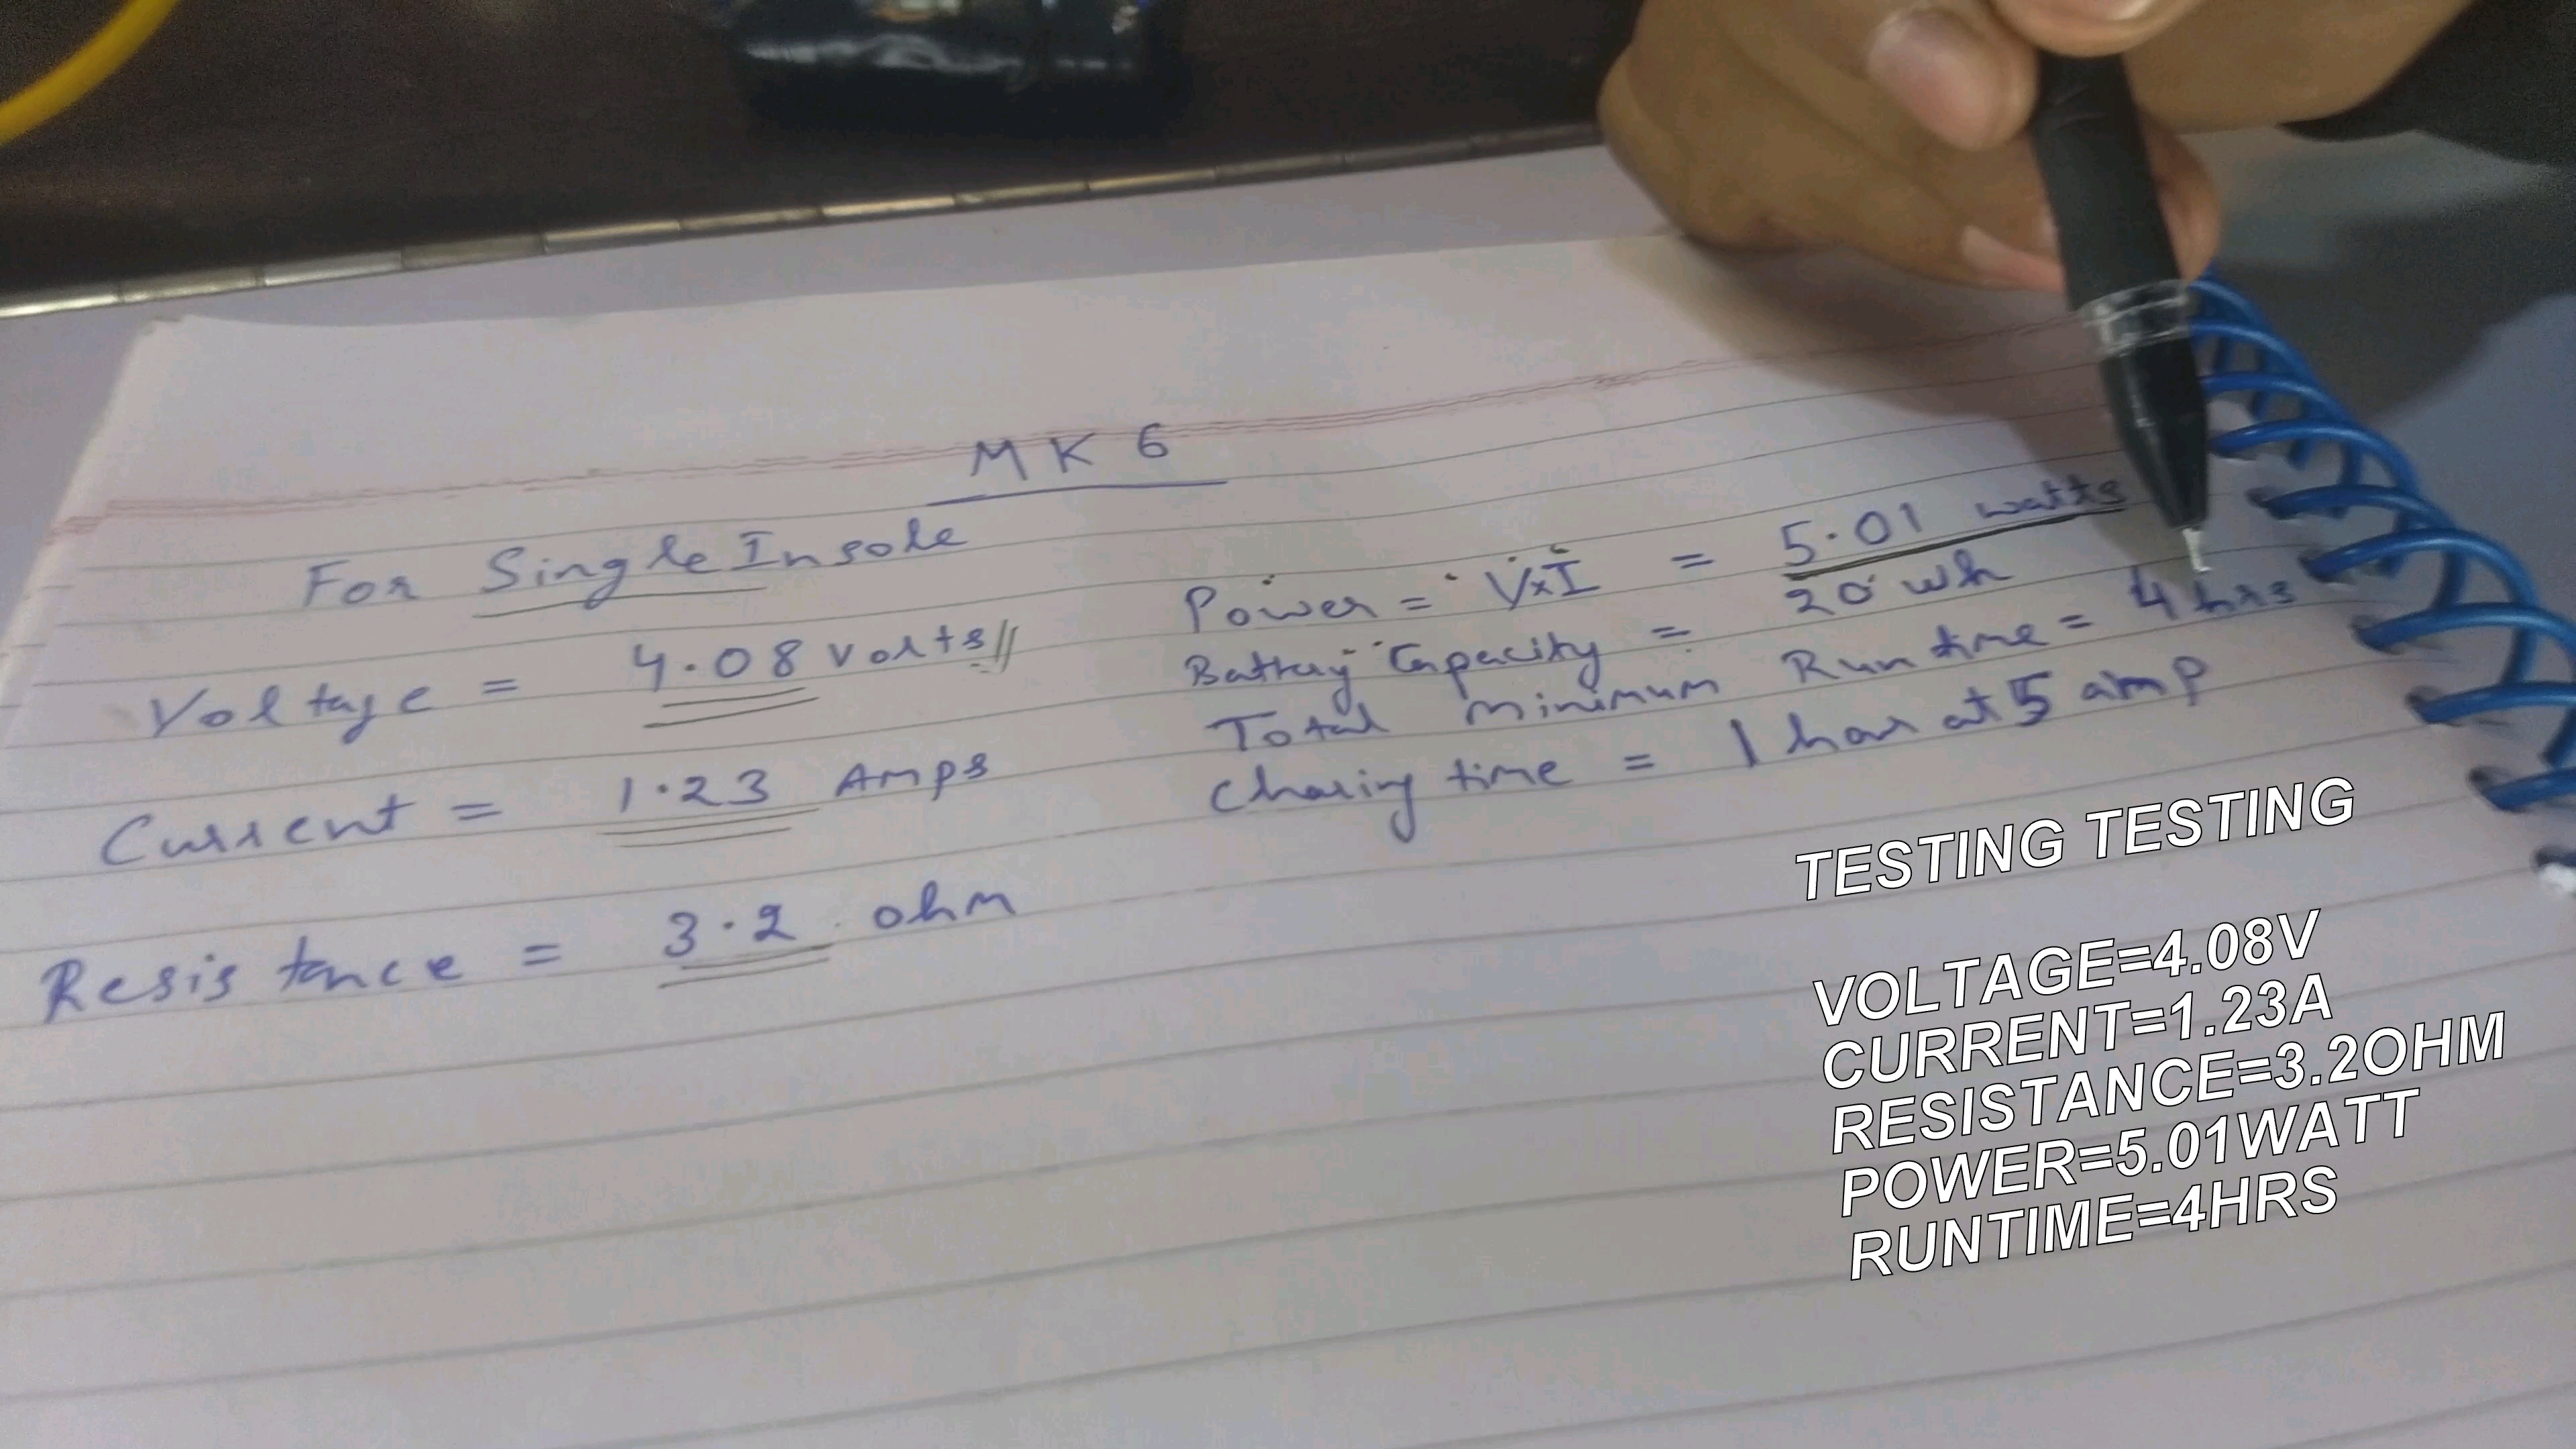 MK6
For Single Insole
Voltage = 4.08 volts//
Current = 1.23 Amps
Resistance = 3.2 ohm
Power = VxI = 5.01 watts
Battery Capacity = 20 wh
Total minimum Run time = 4 hrs
Charing time = 1 hour at 5 amp
TESTING TESTING
VOLTAGE=4.08V
CURRENT=1.23A
RESISTANCE=3.2OHM
POWER=5.01WATT
RUNTIME=4HRS